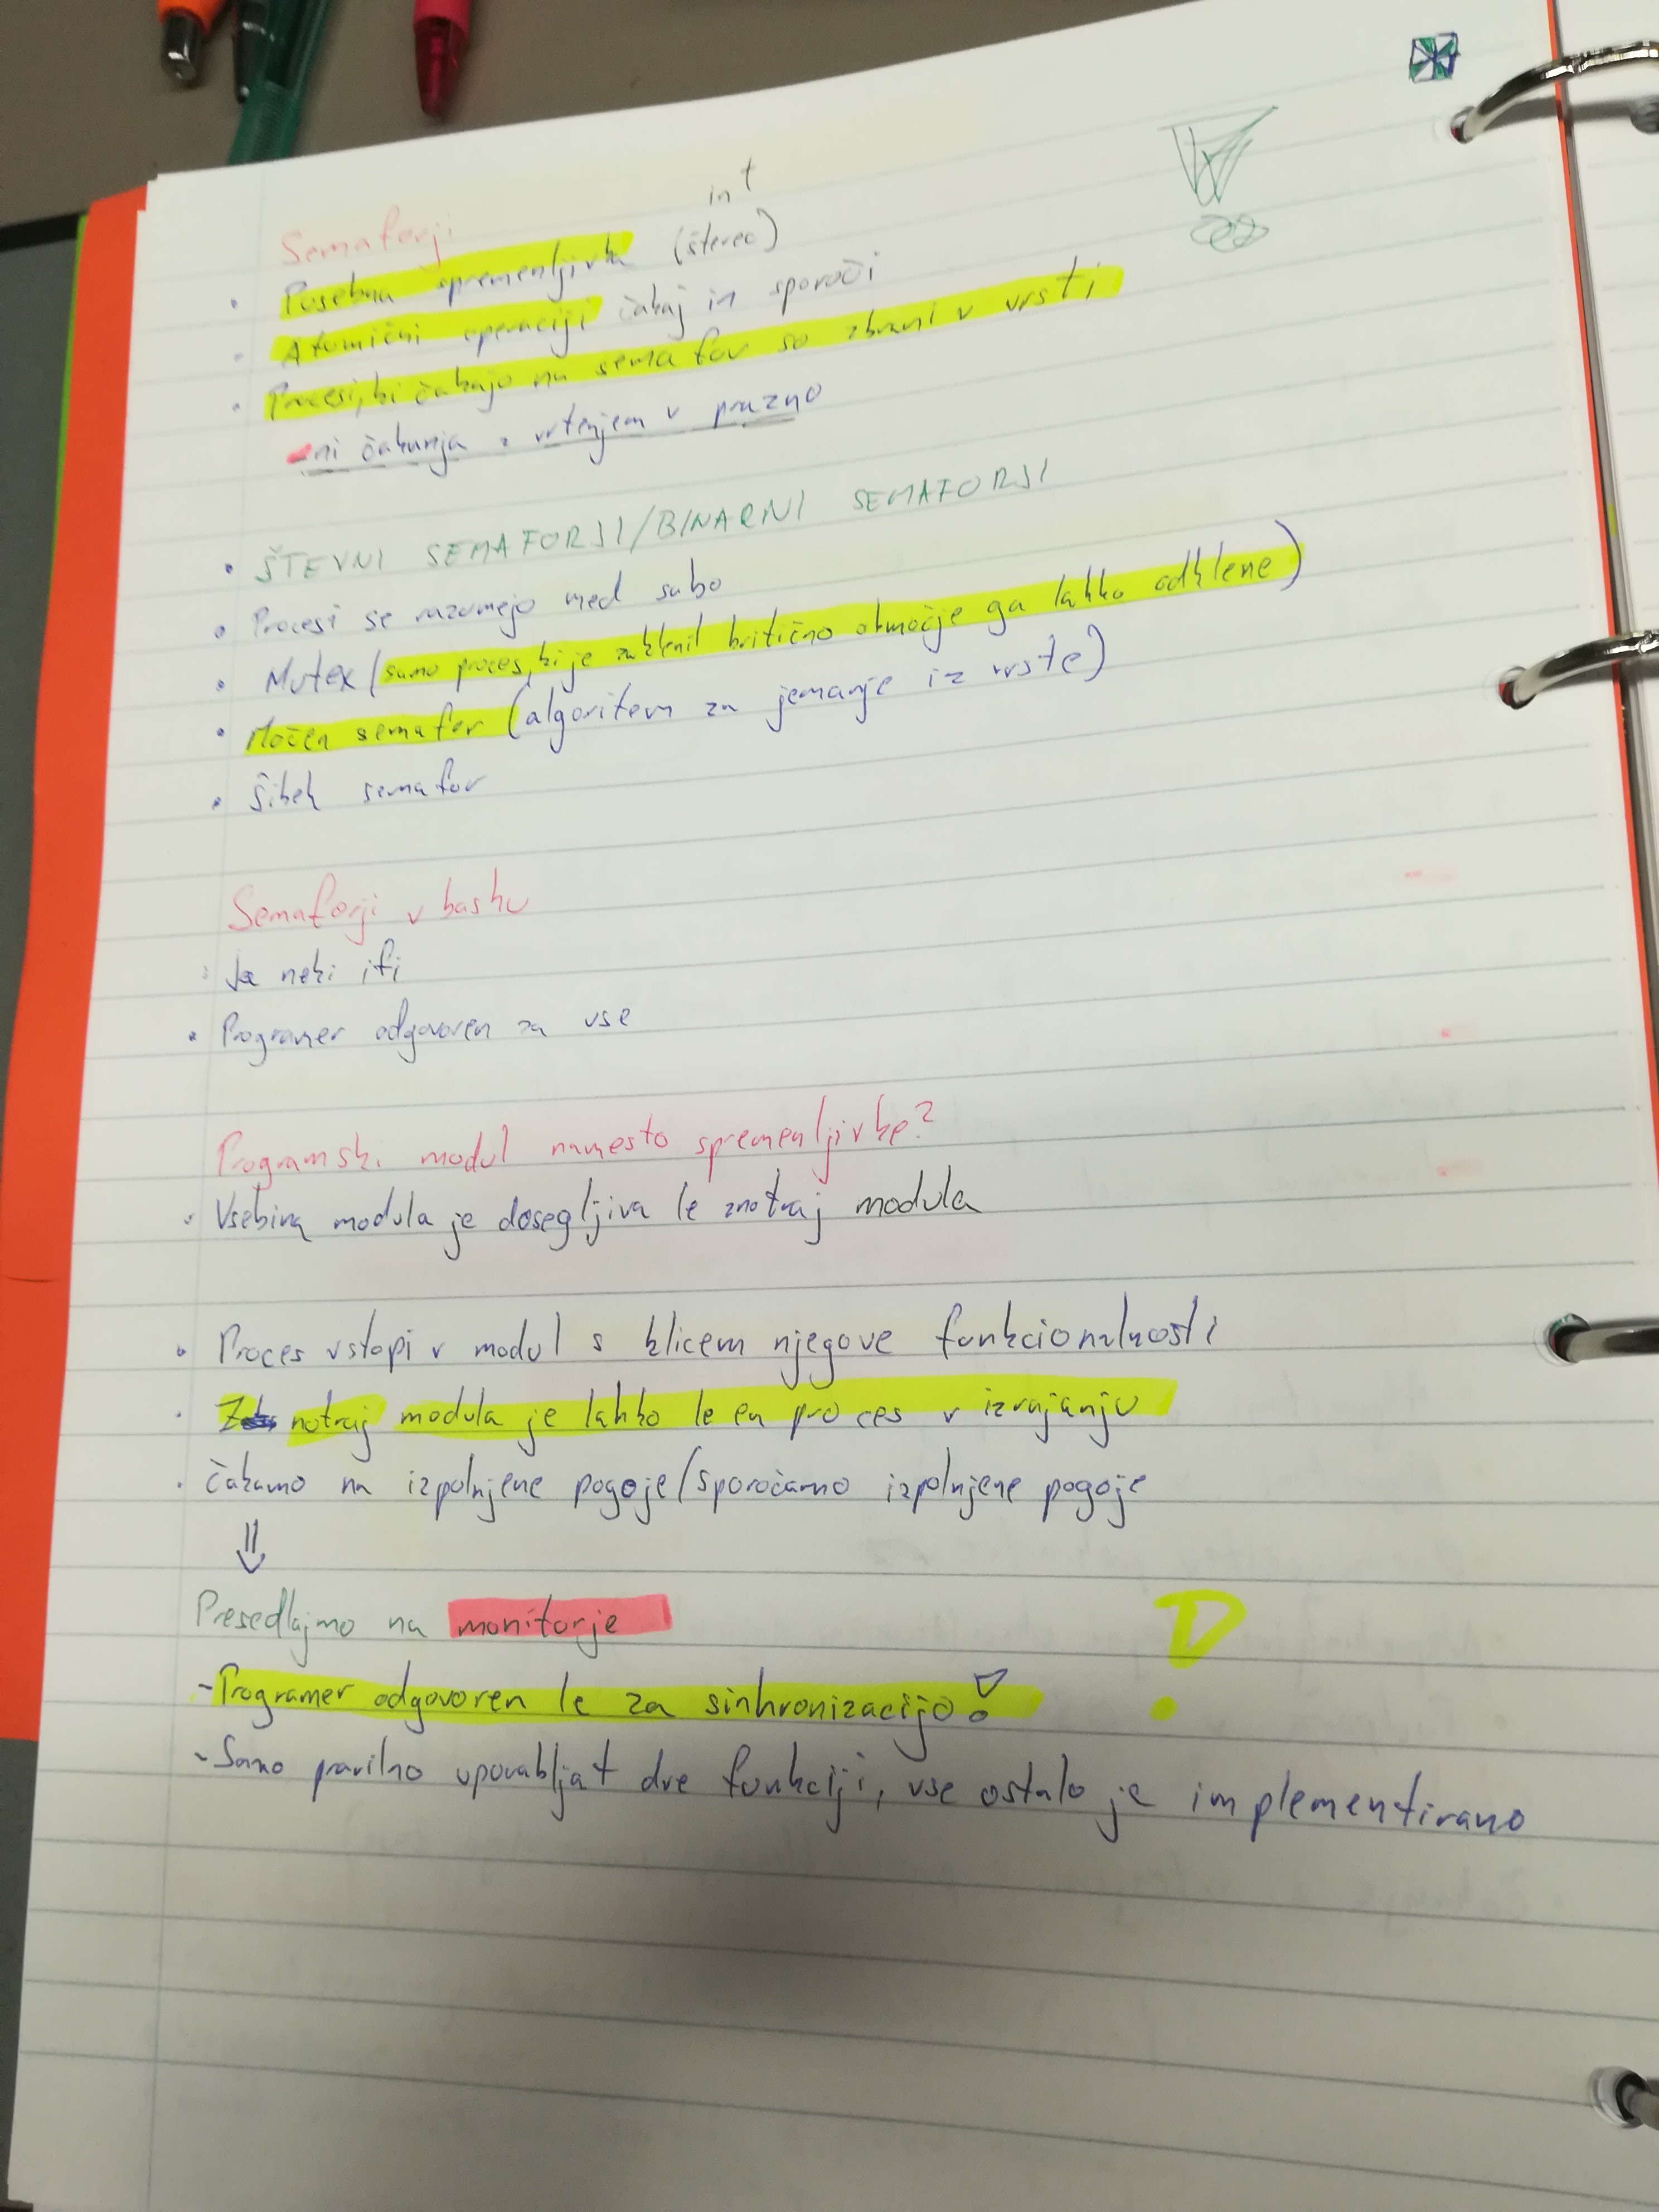 int
Semaforji
• Posebna spremenljivka (števec)
• Atomični operaciji čakaj in sporoči
• Procesi, ki čakajo na semafor so zbrani v vrsti
-ni čakanja z vrtenjem v prazno
• ŠTEVNI SEMAFORJI/BINARNI SEMAFORJI
• Procesi se razumejo med sabo
• Mutex (samo proces, ki je zaklenil kritično območje ga lahko odklene)
• Močen semafor (algoritem za jemanje iz vrste)
• Šibek semafor
Semaforji v bashu
• Ja neki ifi
• Programer odgovoren za vse
Programski modul namesto spremenljivke?
• Vsebina modula je dosegljiva le znotraj modula
• Proces vstopi v modul s klicem njegove funkcionalnosti
• Znotraj modula je lahko le en proces v izvajanju
• Čakamo na izpolnjene pogoje/sporočamo izpolnjene pogoje
⇓
Presedlajmo na monitorje
-Programer odgovoren le za sinhronizacijo!
-Samo pravilno uporabljat dve funkciji, vse ostalo je implementirano